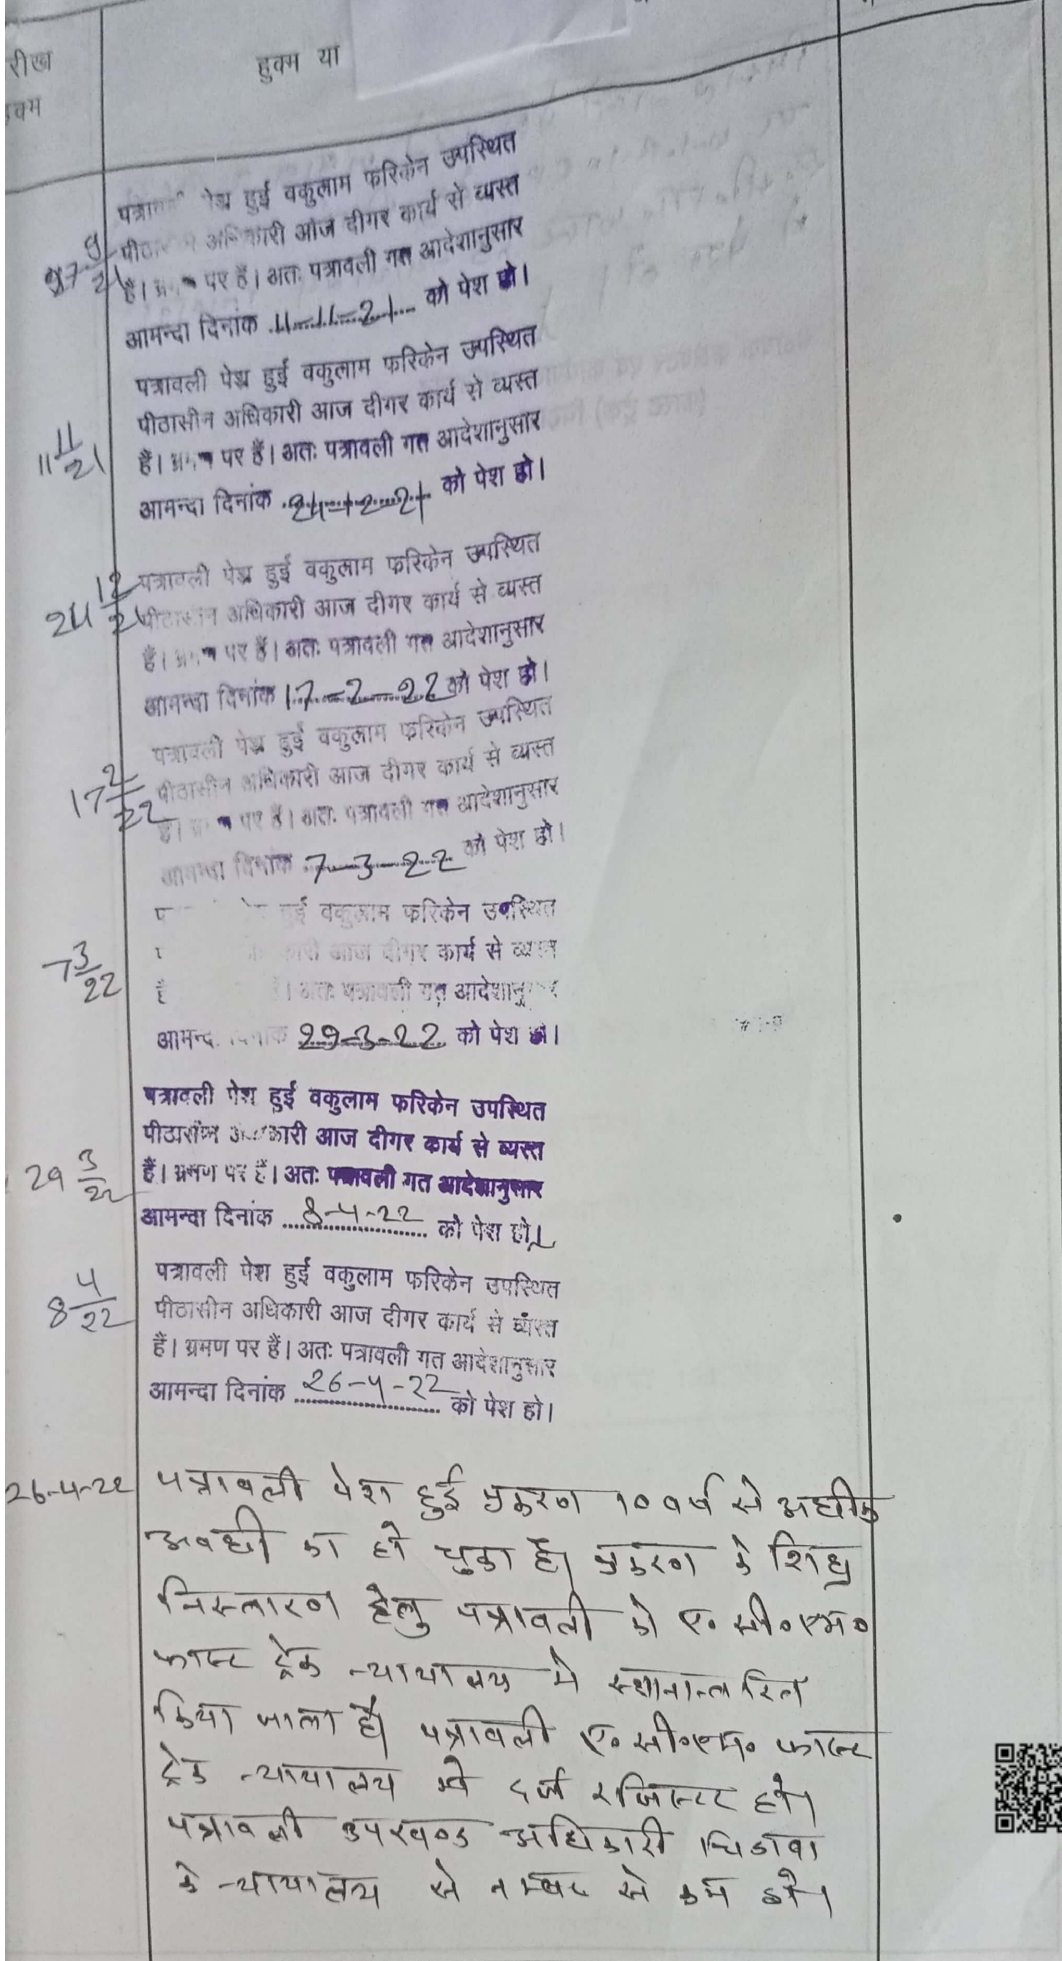 रीख
हुक्म या
क्म
पेश हुई वकुलाम फरिकेन उपस्थित
अधिकारी आज दीगर कार्य से व्यस्त
हैं। पर हैं। अतः पत्रावली गत आदेशानुसार
आमन्दा दिनांक 11-11-21 को पेश हो।
पत्रावली पेश हुई वकुलाम फरिकेन उपस्थित
पीठासीन अधिकारी आज दीगर कार्य से व्यस्त
11 11/21
हैं। पर हैं। अतः पत्रावली गत आदेशानुसार
आमन्दा दिनांक 24-12-21 को पेश हो।
पत्रावली पेश हुई वकुलाम फरिकेन उपस्थित
24 12/21
पीठासीन अधिकारी आज दीगर कार्य से व्यस्त
हैं। पर हैं। अतः पत्रावली गत आदेशानुसार
आमन्दा दिनांक 17-2-22 को पेश हो।
पत्रावली पेश हुई वकुलाम फरिकेन उपस्थित
17 2/22
पीठासीन अधिकारी आज दीगर कार्य से व्यस्त
पर हैं। अतः पत्रावली गत आदेशानुसार
आमन्दा दिनांक 7-3-22 को पेश हो।
हुई वकुलाम फरिकेन उपस्थित
7 3/22
आज दीगर कार्य से व्यस्त
है । अतः पत्रावली गत
दिनांक 29-3-22 को पेश हो।
पत्रावली पेश हुई वकुलाम फरिकेन उपस्थित
पीठासीन आज दीगर कार्य से व्यस्त
29 3/22
हैं। भ्रमण पर हैं। अतः पत्रावली गत आदेशानुसार
आमन्दा दिनांक 8-4-22 को पेश हो।
पत्रावली पेश हुई वकुलाम फरिकेन उपस्थित
8 4/22
पीठासीन अधिकारी आज दीगर कार्य से व्यस्त
हैं। भ्रमण पर हैं। अतः पत्रावली गत आदेशानुसार
आमन्दा दिनांक 26-4-22 को पेश हो।
26-4-22 पत्रावली पेश हुई प्रकरण 10 वर्ष से अधीक
अवधी का हो चुका है। प्रकरण के शिघ्र
निस्तारण हेतु पत्रावली को ए॰ सी॰ एम॰
फास्ट ट्रेक न्यायालय मे स्थानान्तरित
किया जाता है। पत्रावली ए॰ सी॰ एम॰ फास्ट
ट्रेक न्यायालय मे दर्ज रजिस्टर हो।
पत्रावली उपखण्ड अधिकारी चिडावा
के न्यायालय से नम्बर से कम हो।